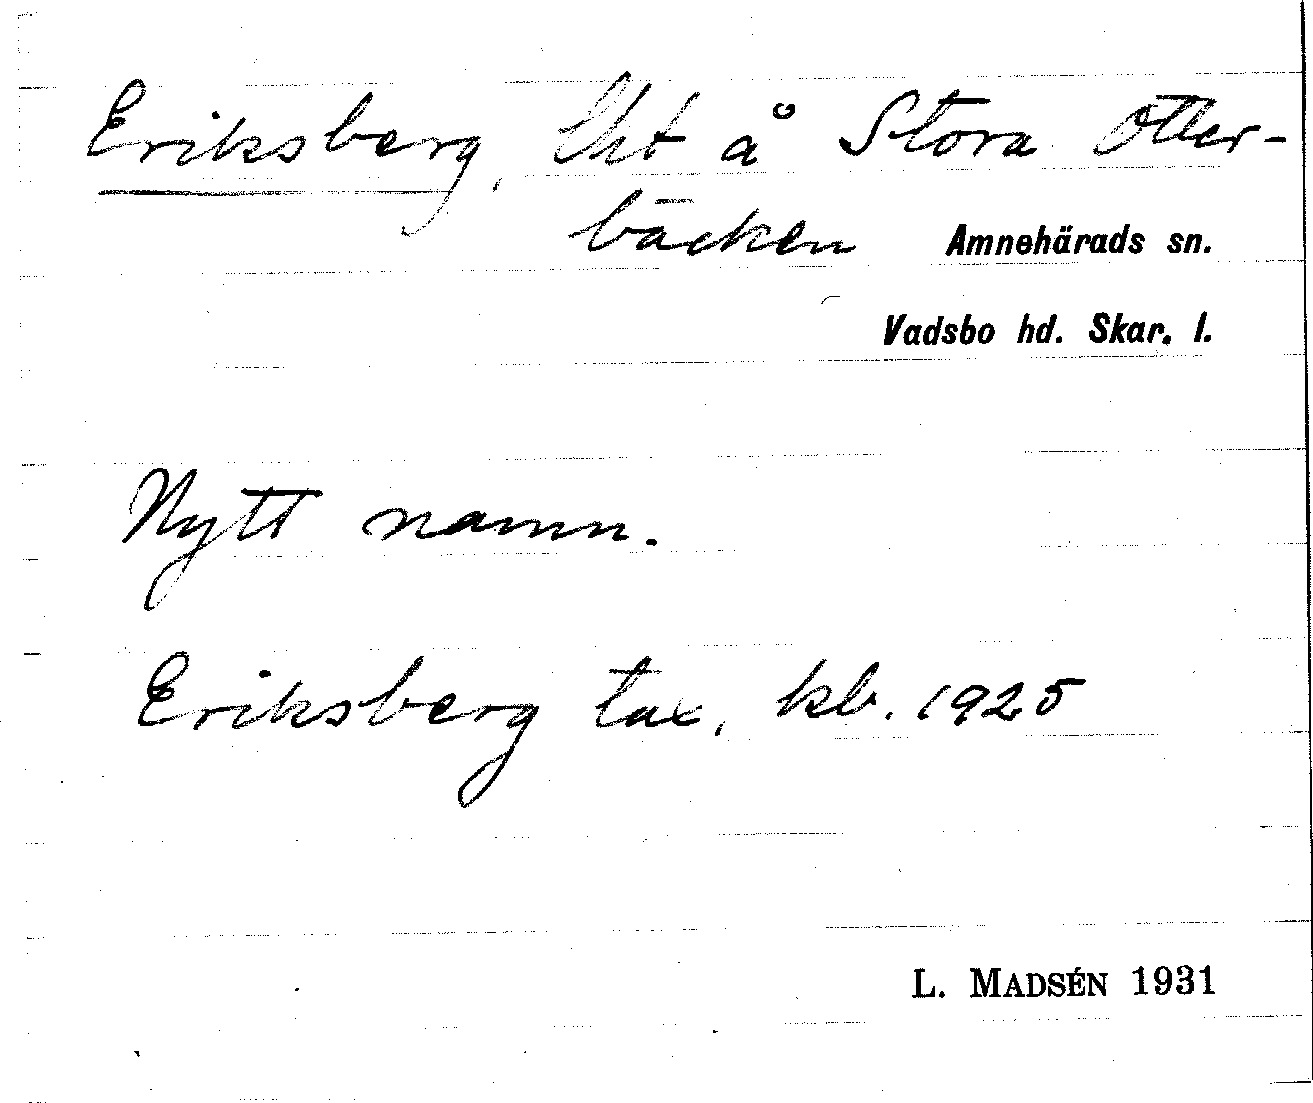 Eriksberg, lht å Stora Otter-
bäcken Amnehärads sn.
Vadsbo hd. Skar. l.
Nytt namn.
Eriksberg tax, kb. 1925
L. MADSÉN 1931